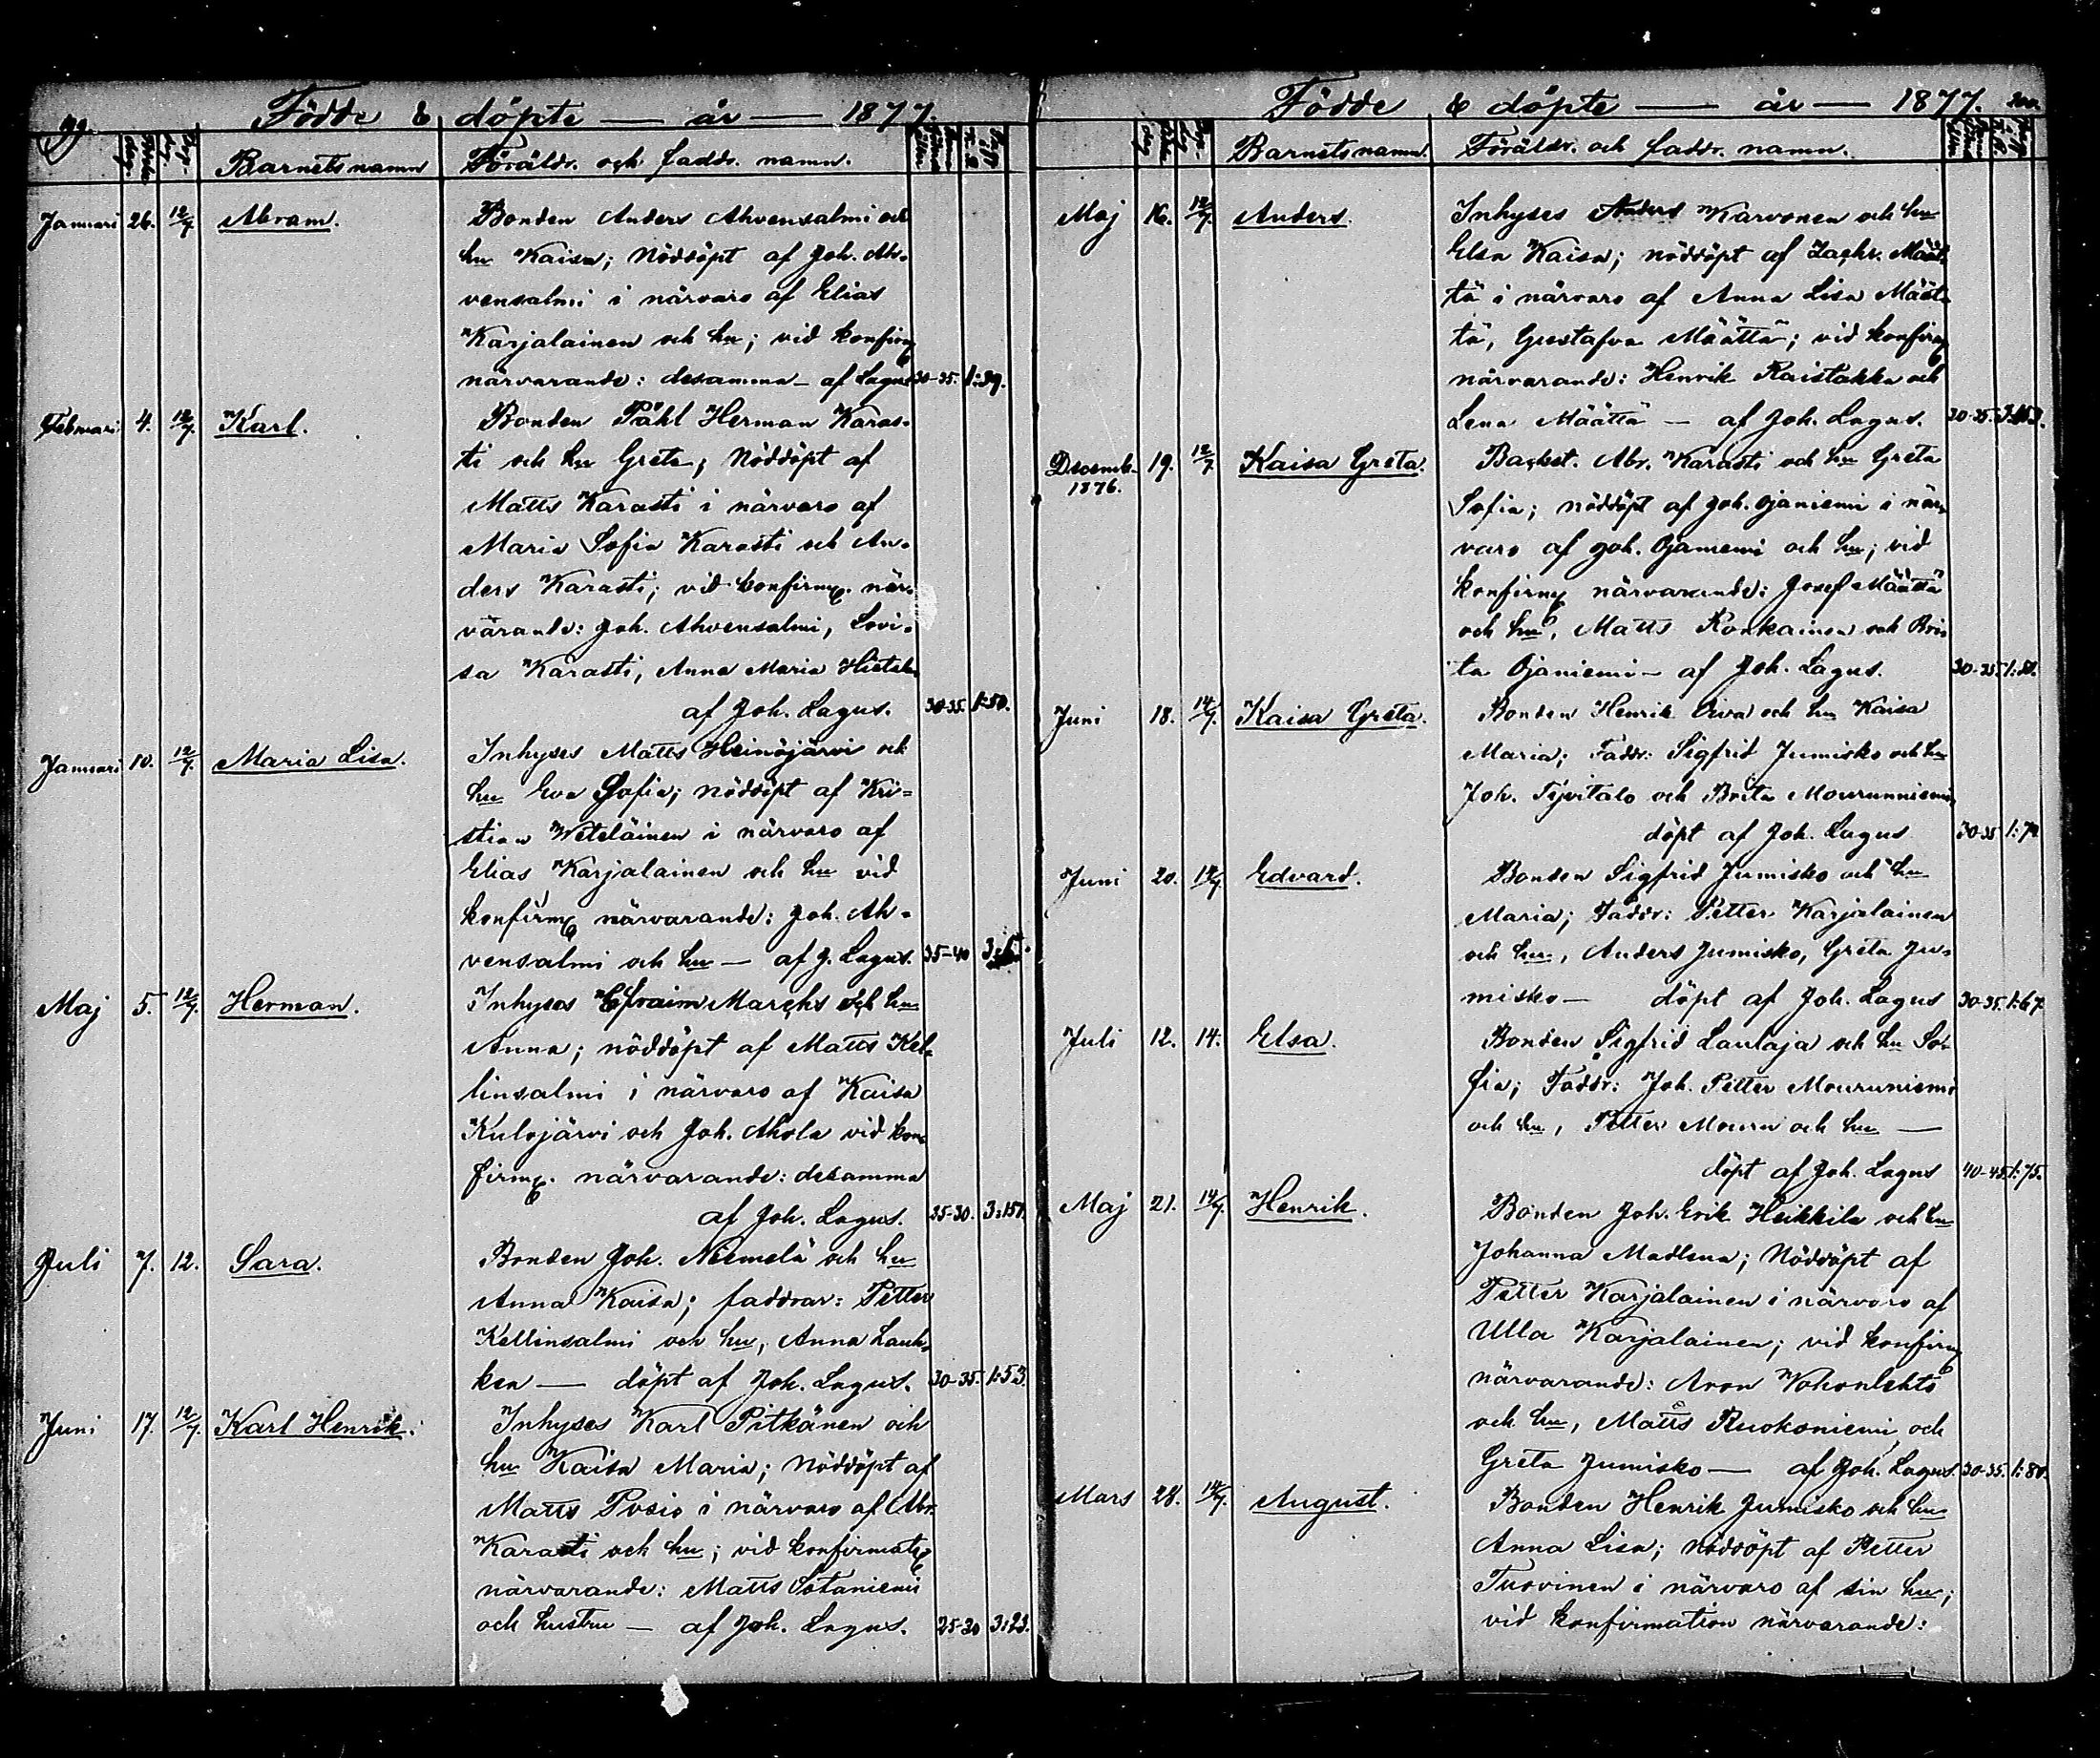 199.
Födde & döpte — år — 1877.
Barnets namn Föräldr. och faddr. namn.
Januari 26. 12/7. Abram. Bonden Anders Ahvensalmi och
hu Kaisa; Nöddöpt af Joh. Ah-
vensalmi i närvaro af Elias
Karjalainen och hu; vid konfirm
närvarande: desamma — af Lagus 30-35. 1:39.
Februari 4. 12/7. Karl. Bonden Påhl Herman Karas-
ti och hu Greta; Nöddöpt af
Matts Karasti i närvaro af
Maria Sofia Karasti och An-
ders Karasti; vid konfirm. när-
varande: Joh. Ahvensalmi, Lovi-
sa Karasti, Anna Maria
af Joh. Lagus. 30-35. 1:50.
Januari 10. 12/7. Maria Lisa. Inhyses Matts Heinöjärvi och
hu Eva Sofia; nöddöpt af Kri=
stian Weteläinen i närvaro af
Elias Karjalainen och hu vid
konfirm närvarande: Joh. Ah-
vensalmi och hu — af J. Lagus. 35-40
Maj 5. 12/7. Herman. Inhyses Efraim Marcks och hu
Anna; nöddöpt af Matts Kel-
linsalmi i närvaro af Kaisa
Kulojärvi och Joh. Ahola vid kon-
firm. närvarande: desamma
af Joh. Lagus. 25-30. 3:157.
Juli 7. 12. Sara. Bonden Joh. Niemelä och hu
Anna Kaisa; faddrar: Petter
Kellinsalmi och hu, Anna Lauk-
ken — döpt af Joh. Lagus. 30-35. 1:53.
Juni 17. 12/7. Karl Henrik. Inhyses Karl Pitkänen och
hu Kaisa Maria; Nöddöpt af
Matts Posio i närvaro af Abr.
Karasti och hu; vid konfirmat
närvarande: Matts Sotaniemi
och hustru — af Joh. Lagus. 25-30 3:23.
200.
Födde & döpte — år — 1877.
Barnets namn. Föräldr. och faddr. namn.
Maj 16. 12/7. Anders. Inhyses Anders Karvonen och hu
Elsa Kaisa; nöddöpt af Zachr. Määt-
tä i närvaro af Anna Lisa Määt-
tä, Gustafva Määttä; vid konfirm
närvarande: Henrik Raistakka och
Lena Määttä — af Joh. Lagus. 30-35.
Decemb. 19. 12/7. Kaisa Greta. Backst. Abr. Karasti och hu Greta
1876.
Sofia; nöddöpt af Joh. Ojaniemi i när-
varo af Joh. Ojaniemi och hu; vid
konfirm närvarande: Josef Määttä
och hu, Matts Ronkainen och Bri-
ta Ojaniemi — af Joh. Lagus. 30-35.
Juni 18. 14/7. Kaisa Greta. Bonden Henrik Oiva och hu Kaisa
Maria; Faddr: Sigfrid Jumisko och hu
Joh. Törvitalo och Brita Mourunniemi,
döpt af Joh. Lagus 30-35
Juni 20. 14/7. Edvard. Bonden Sigfrid Jumisko och hu
Maria; Faddr: Petter Karjalainen
och hu, Anders Jumisko, Greta Ju-
misko — döpt af Joh. Lagus 30-35. 1:67.
Juli 12. 14. Elsa. Bonden Sigfrid Laulaja och hu So-
fia; Faddr: Joh. Petter Mouruniemi
och hu, Petter Mouru och hu —
döpt af Joh. Lagus 40-45. 1:75.
Maj 21. 14/7. Henrik. Bonden Joh. Erik Heikkila och hu
Johanna Madlena; Nöddöpt af
Petter Karjalainen i närvaro af
Ulla Karjalainen; vid konfirm
närvarande: Aron Vohonlehto
och hu, Matts Ruokoniemi, och
Greta Jumisko — af Joh. Lagus. 30-35. 1:80.
Mars 28. 14/7. August. Bonden Henrik Jumisko och hu
Anna Lisa; nöddöpt af Petter
Tuovinen i närvaro af sin hu;
vid konfirmation närvarande: